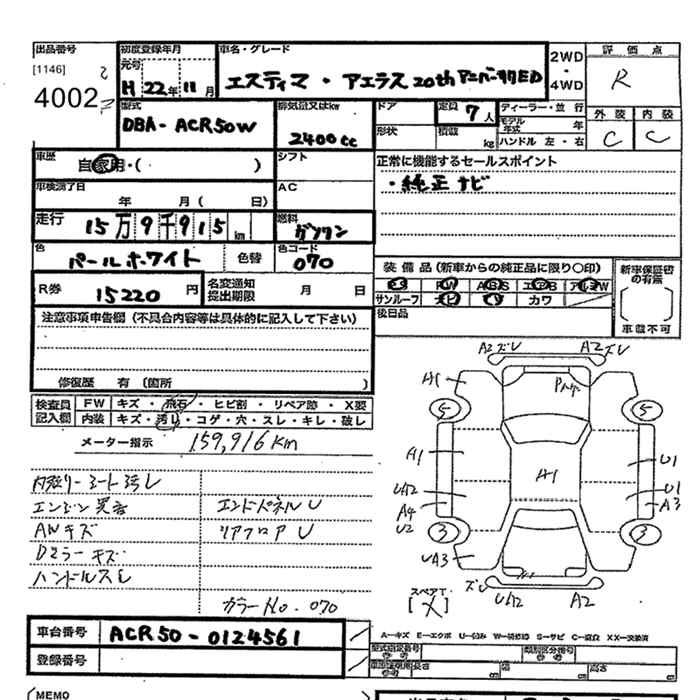 出品番号
[1146]
4002
初度登録年月
元号
H 22年 11月
車名・グレード
エスティマ・アエラス 20th アニバーサリED
2WD
・
4WD
評価点
R
外装 内装
C C
型式
DBA-ACR50W
排気量又はkw
2400cc
ドア
形状
定員 7人
積載 kg
ディーラー・並行
モデル年式 年
ハンドル 左・右
車歴
自家用・( )
シフト
正常に機能するセールスポイント
・純正ナビ
車検満了日
年 月( 日)
AC
走行 15万9千915 km
燃料
ガソリン
色
パールホワイト 色替
色コード
070
R券 15220円
名変通知
提出期限 月 日
装備品(新車からの純正品に限り〇印)
サンルーフ カワ
新車保証書の有無
車載不可
後日品
注意事項申告欄(不具合内容等は具体的に記入して下さい)
修復歴 有(箇所 )
検査員記入欄
FW キズ・飛石・ヒビ割・リペア跡・X要
内装 キズ・汚れ・コゲ・穴・スレ・キレ・破レ
メーター指示 159,916 Km
内張リ シート汚レ
エンジン異音 エンドパネルU
AWキズ リアフロアU
Dミラーキズ
ハンドルスレ
カラーNo. 070
A2ズレ A2ズレ
A1
5 5
A1 A1 U1
UA2 U1
A4 A3
U2
3 3
UA3
ズレ UA2 A2
スペアT
[X]
車台番号 ACR50-0124561
登録番号
A-キズ E-エクボ U-凹み W-補修跡 S-サビ C-腐食 XX-交換済
型式指定番号 類別区分番号
長さ cm 幅 cm 高さ cm
MEMO